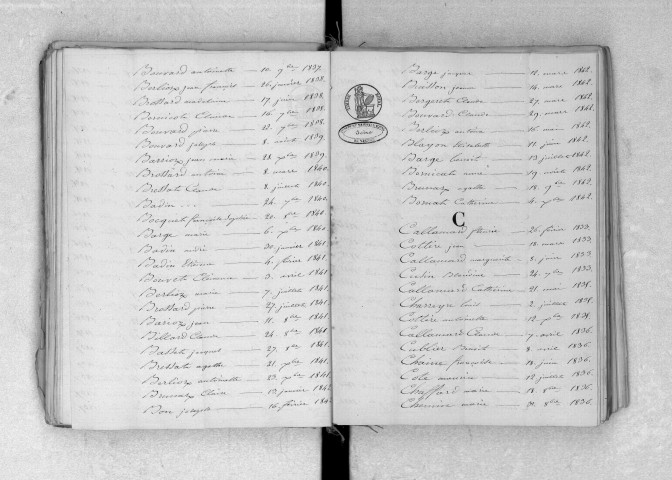 Bouvard antoinette — 10. 9bre 1837.
Berlioz jean françois — 26. janvier 1838.
Brottard madeleine — 17. juin 1838.
Bernicat Etienne — 16. 9bre 1838.
Bouvard pierre — 23. 9bre 1838.
Bouvard joseph — 8. août 1839.
Barrioz jean marie — 28. xbre 1839.
Brottard antoine — 8. mars 1840.
Brottats Claude — 8. juillet 1840.
Badin ... — 24. 1840.
Bocquet françoise — 20. 8bre 1840.
Barge marie — 6. xbre 1840.
Badin andré — 30. janvier 1841.
Badin Etienne — 4. février 1841.
Bouvete Etienne — 3. avril 1841.
Berlioz marie — 7. juillet 1841.
Brottard pierre — 27. juillet 1841.
Barioz jean — 11. 8bre 1841.
Billard Claude — 24. 8bre 1841.
Ballet jacques — 27. 8bre 1841.
Brottats agathe — 21. xbre 1841.
Berlioz antoinette — 23. xbre 1841.
Brunaz Claire — 13. janvier 1842
Bon joseph — 16. février 1842
Barge jacques — 11. mars 1842.
Buisson jean — 14. mars 1842.
Bergeret Claude — 27. mars 1842.
Bouvard Claude — 29. mars 1842.
Berlioz antoine — 16. mai 1842.
Blayon Elisabeth — 11. juin 1842.
Barge benoit — 13. juillet 1842.
Bernicat anne — 19. août 1842.
Brunaz agathe — 18. 9bre 1842.
Bonnat Catherine — 4. xbre 1842.
C
Callamard fleurie — 26. février 1833.
Collère jean — 18. mars 1833.
Callamard marguerite — 8. juin 1833.
Cutin — 24. 7bre 1833.
Callamard Catherine — 21. mai 1835.
Charreyn Louis — 2. juillet 1835.
Collère antoinette — 12. xbre 1835.
Callamard Claude — 7. avril 1836.
Cublier Benoit — 8. avril 1836.
Chaine françoise — 18. juin 1836.
Cola — 12. juillet 1836.
Chaffard marie — 18. 8bre 1836.
Chemin marie — 31. 8bre 1836.